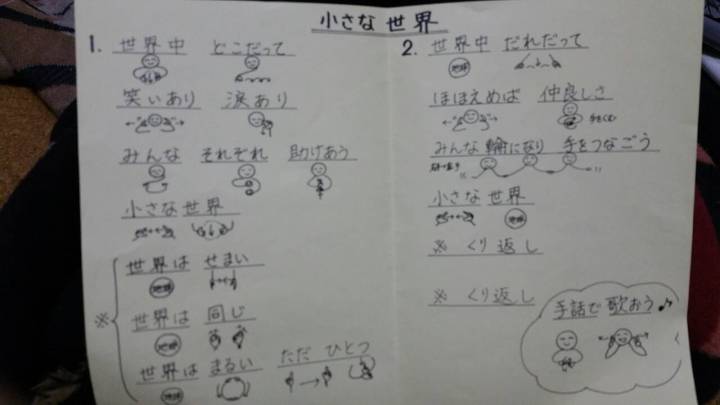 小さな世界
1. 世界中 どこだって
笑いあり 涙あり
みんな それぞれ 助けあう
小さな世界
※ 世界は せまい
地球
世界は 同じ
地球
世界は まるい ただ ひとつ
地球
2. 世界中 だれだって
地球
ほほえめば 仲良しさ
みんな 輪になり 手をつなごう
小さな 世界
地球
※ くり返し
※ くり返し
手話で 歌おう♪